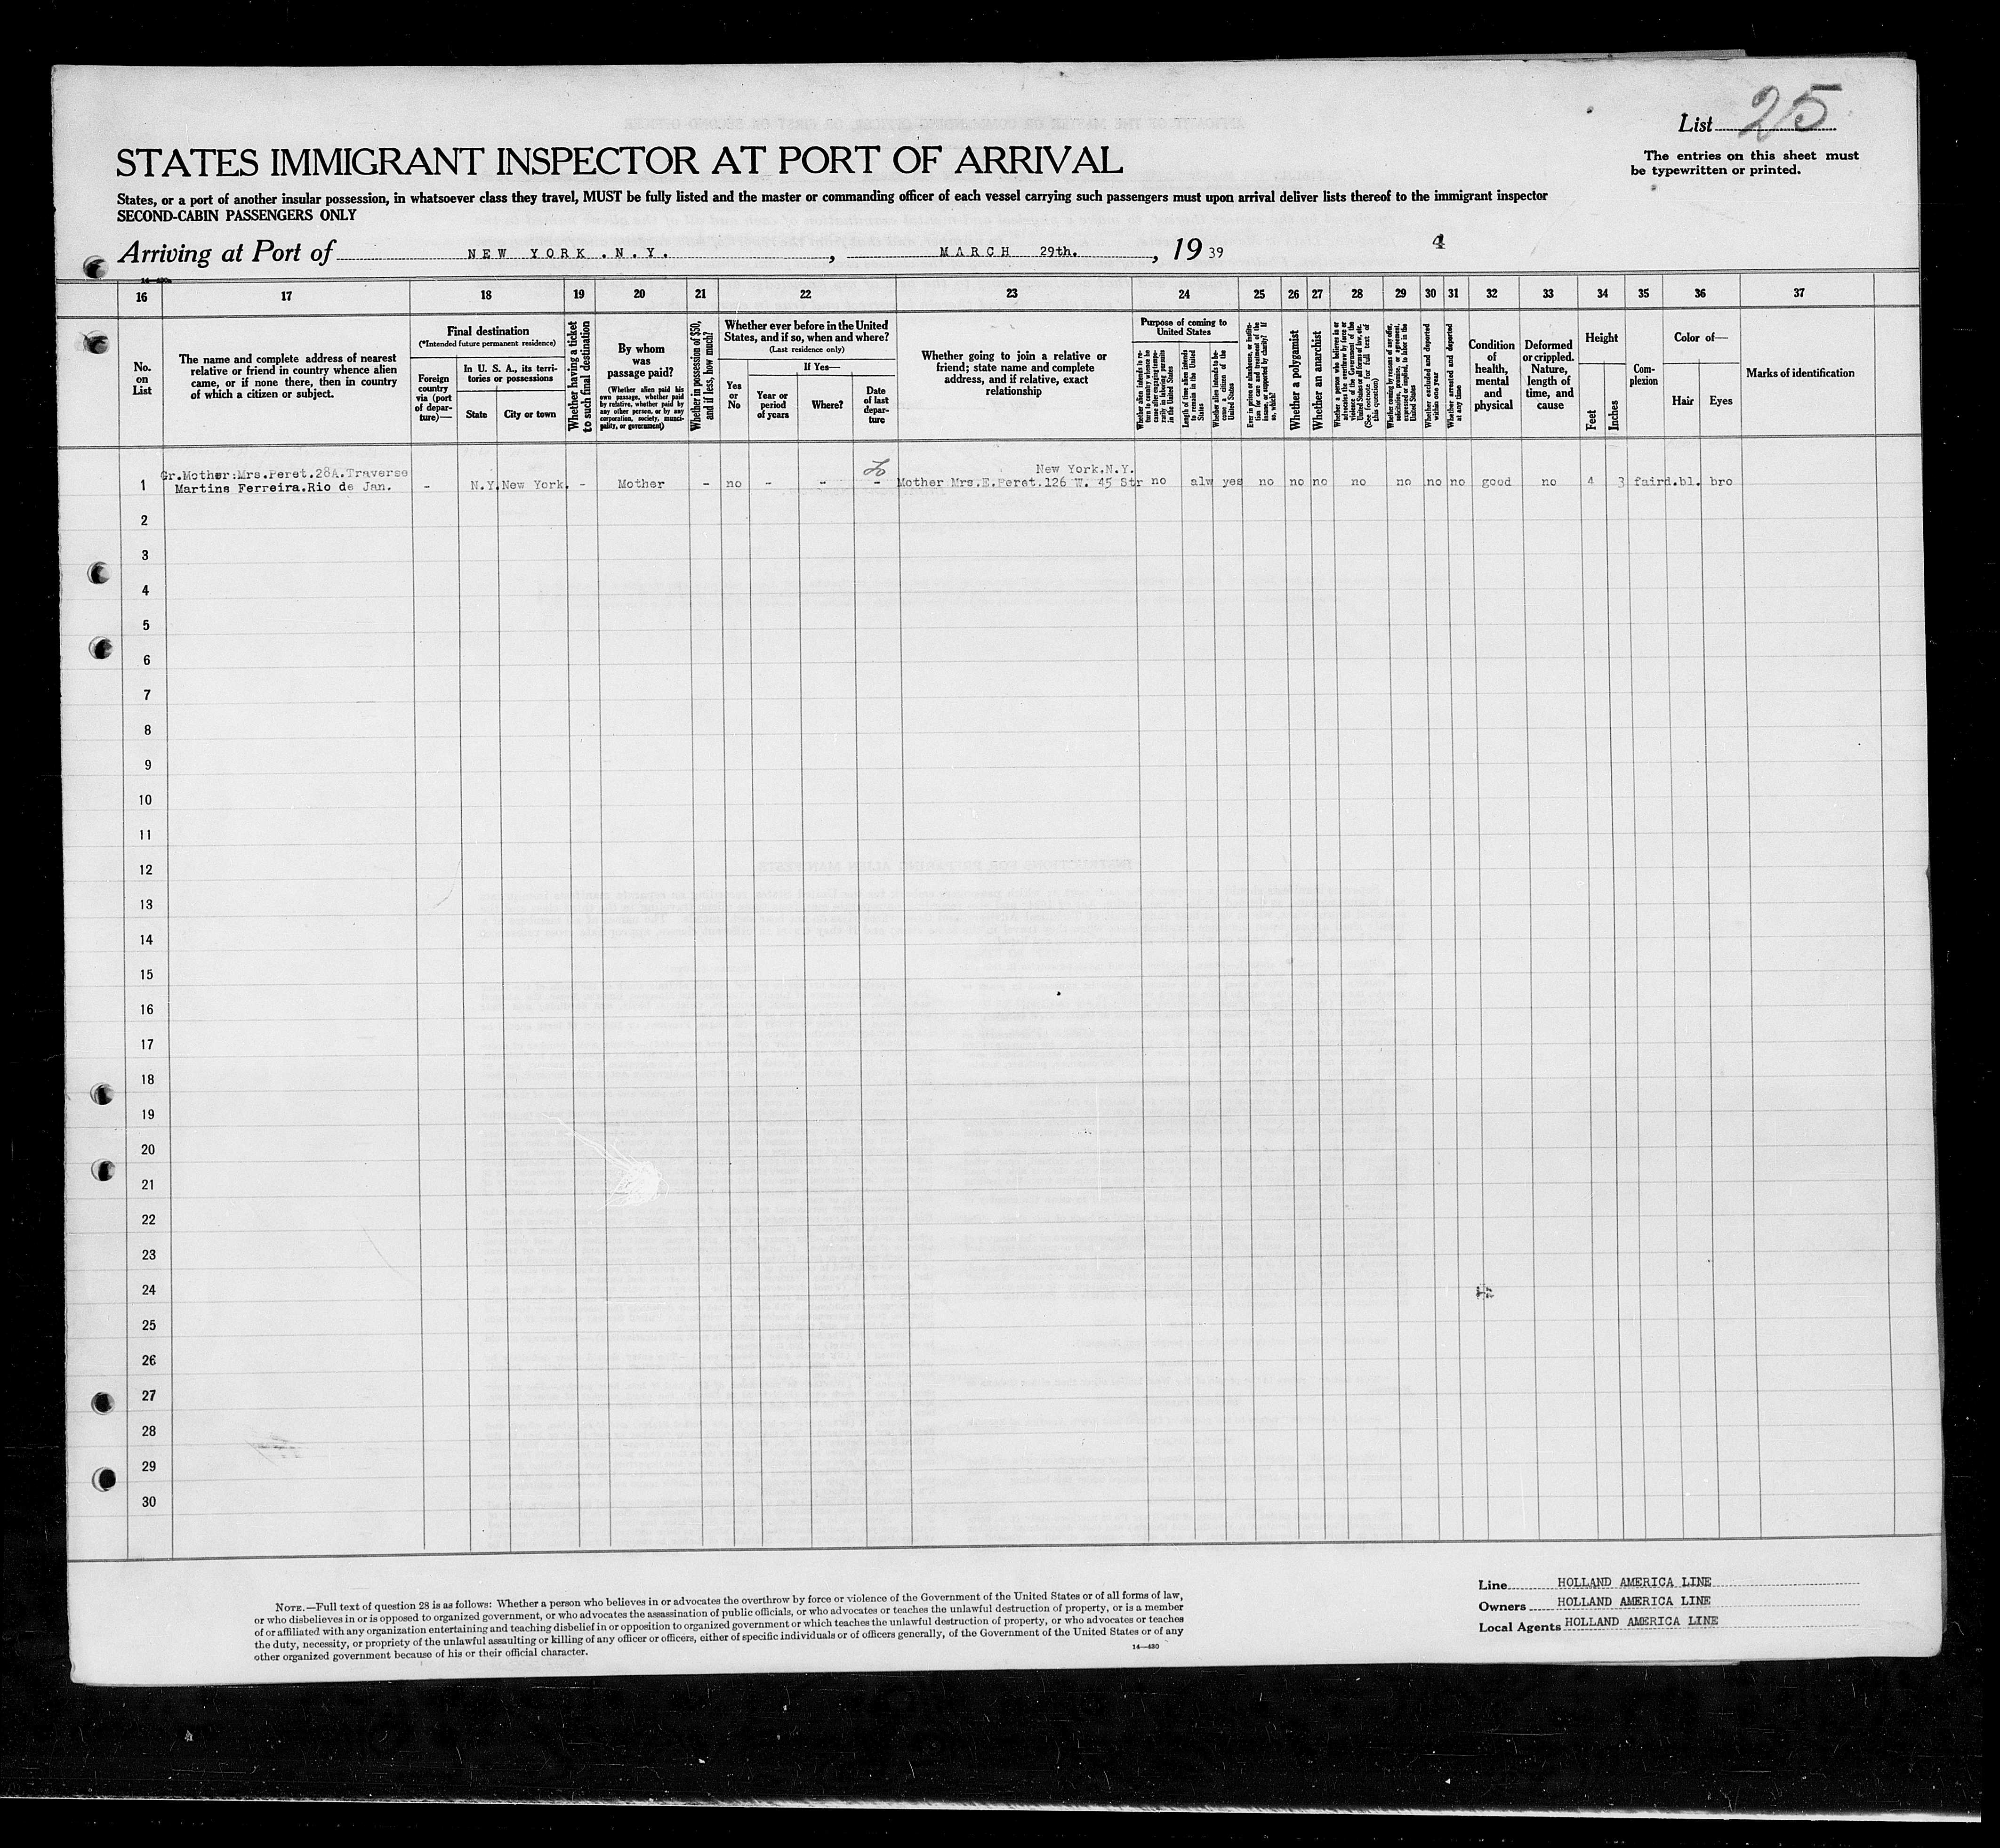 List 25
The entries on this sheet must
be typewritten or printed.
STATES IMMIGRANT INSPECTOR AT PORT OF ARRIVAL
States, or a port of another insular possession, in whatsoever class they travel, MUST be fully listed and the master or commanding officer of each vessel carrying such passengers must upon arrival deliver lists thereof to the immigrant inspector
SECOND-CABIN PASSENGERS ONLY
Arriving at Port of NEW YORK.N.Y., MARCH 29th., 19 39 4
14—430
16 17 18 19 20 21 22 23 24 25 26 27 28 29 30 31 32 33 34 35 36 37
No.
on
List
The name and complete address of nearest
relative or friend in country whence alien
came, or if none there, then in country
of which a citizen or subject.
Final destination
(*Intended future permanent residence)
Foreign
country
via (port
of depar-
ture)—
In U. S. A., its terri-
tories or possessions
State
City or town
Whether having a ticket
to such final destination
By whom
was
passage paid?
(Whether alien paid his
own passage, whether paid
by relative, whether paid by
any other person, or by any
corporation, society, munici-
pality, or government)
Whether in possession of $50,
and if less, how much?
Whether ever before in the United
States, and if so, when and where?
(Last residence only)
Yes
or
No
If Yes—
Year or
period
of years
Where?
Date
of last
depar-
ture
Whether going to join a relative or
friend; state name and complete
address, and if relative, exact
relationship
Purpose of coming to
United States
Whether alien intends to re-
turn to country whence he
came after engaging tempo-
rarily in laboring pursuits
in the United States
Length of time alien intends
to remain in the United
States
Whether alien intends to be-
come a citizen of the
United States
Ever in prison or almshouse, or institu-
tion for care and treatment of the
insane, or supported by charity? If
so, which?
Whether a polygamist
Whether an anarchist
Whether a person who believes in or
advocates the overthrow by force or
violence of the Government of the
United States or all forms of law, etc.
(See footnote for full text of
this question)
Whether coming by reason of any offer,
solicitation, promise, or agreement,
expressed or implied, to labor in the
United States
Whether excluded and deported
within one year
Whether arrested and deported
at any time
Condition
of
health,
mental
and
physical
Deformed
or crippled.
Nature,
length of
time, and
cause
Height
Feet
Inches
Com-
plexion
Color of—
Hair
Eyes
Marks of identification
Gr.Mother:Mrs.Peret.28A.Traverse New York.N.Y.
1 Martins Ferreira.Rio de Jan. - N.Y. New York. - Mother - no - - - Mother Mrs.E.Peret.126 W. 45 Str no alw yes no no no no no no no good no 4 3 fair d.bl. bro
2
3
4
5
6
7
8
9
10
11
12
13
14
15
16
17
18
19
20
21
22
23
24
25
26
27
28
29
30
NOTE.—Full text of question 28 is as follows: Whether a person who believes in or advocates the overthrow by force or violence of the Government of the United States or of all forms of law,
or who disbelieves in or is opposed to organized government, or who advocates the assassination of public officials, or who advocates or teaches the unlawful destruction of property, or is a member
of or affiliated with any organization entertaining and teaching disbelief in or opposition to organized government or which teaches the unlawful destruction of property, or who advocates or teaches
the duty, necessity, or propriety of the unlawful assaulting or killing of any officer or officers, either of specific individuals or of officers generally, of the Government of the United States or of any
other organized government because of his or their official character.
14—430
Line HOLLAND AMERICA LINE
Owners HOLLAND AMERICA LINE
Local Agents HOLLAND AMERICA LINE